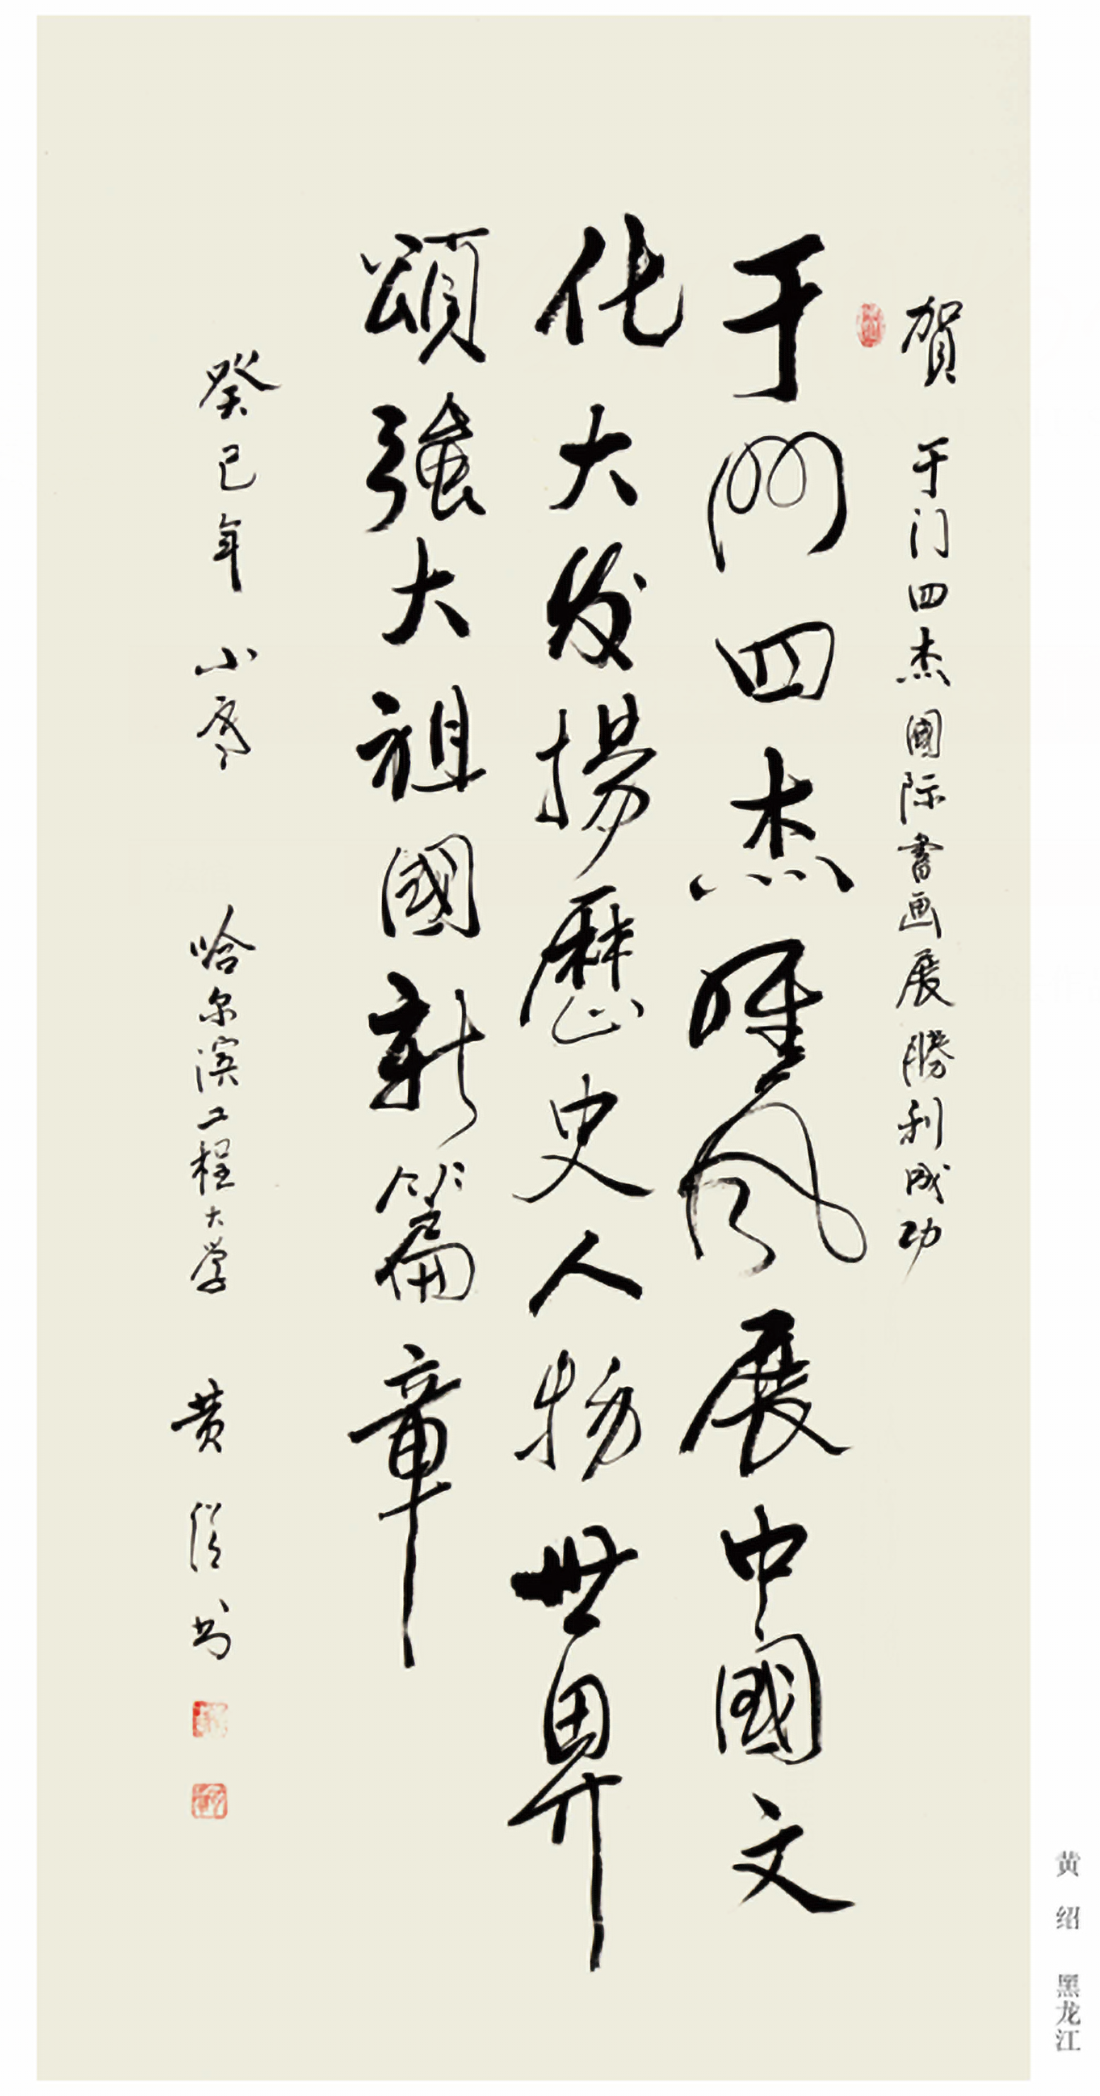 賀 于门四杰國际書画展勝利成功
于門四杰雄风展中國文
化大发揚歷史人物世界
頌強大祖國新篇章
癸巳年 小 哈尔滨工程大学 黄绍书
黄绍 黑龙江